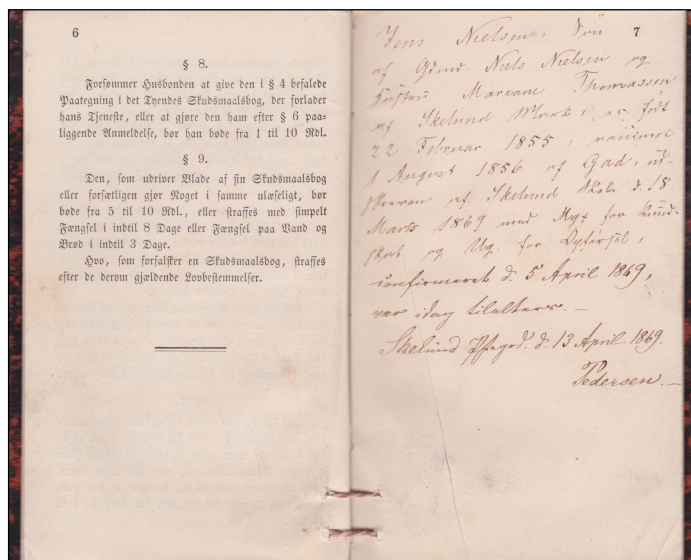 6
§ 8.
Forsømmer Husbonden at give den i § 4 befalede
Paategning i det Tyendes Skudsmaalsbog, der forlader
hans Tjeneste, eller at gjøre den ham efter § 6 paa-
liggende Anmeldelse, bør han bøde fra 1 til 10 Rdl.
§ 9.
Den, som udriver Blade af sin Skudsmaalsbog
eller forsætligen gjør Noget i samme ulæseligt, bør
bøde fra 5 til 10 Rdl., eller straffes med simpelt
Fængsel i indtil 8 Dage eller Fængsel paa Vand og
Brød i indtil 3 Dage.
Hvo, som forfalsker en Skudsmaalsbog, straffes
efter de derom gjældende Lovbestemmelser.
7
Jens Nielsen, Søn
af Gmd. Niels Nielsen og
Hustru Mariane Thomassen
af Skelund Mark, er født
22 Februar 1855, vaccineret
1 August 1856 af Gad, ud-
skreven af Skelund Skole d. 18
Marts 1869 med Mg+ for Kund-
skab og Ug. for Opførsel,
confirmeret d. 5 April 1869,
var idag tilalters. —
Skelund Præstegd. d. 13 April 1869.
Pedersen. —